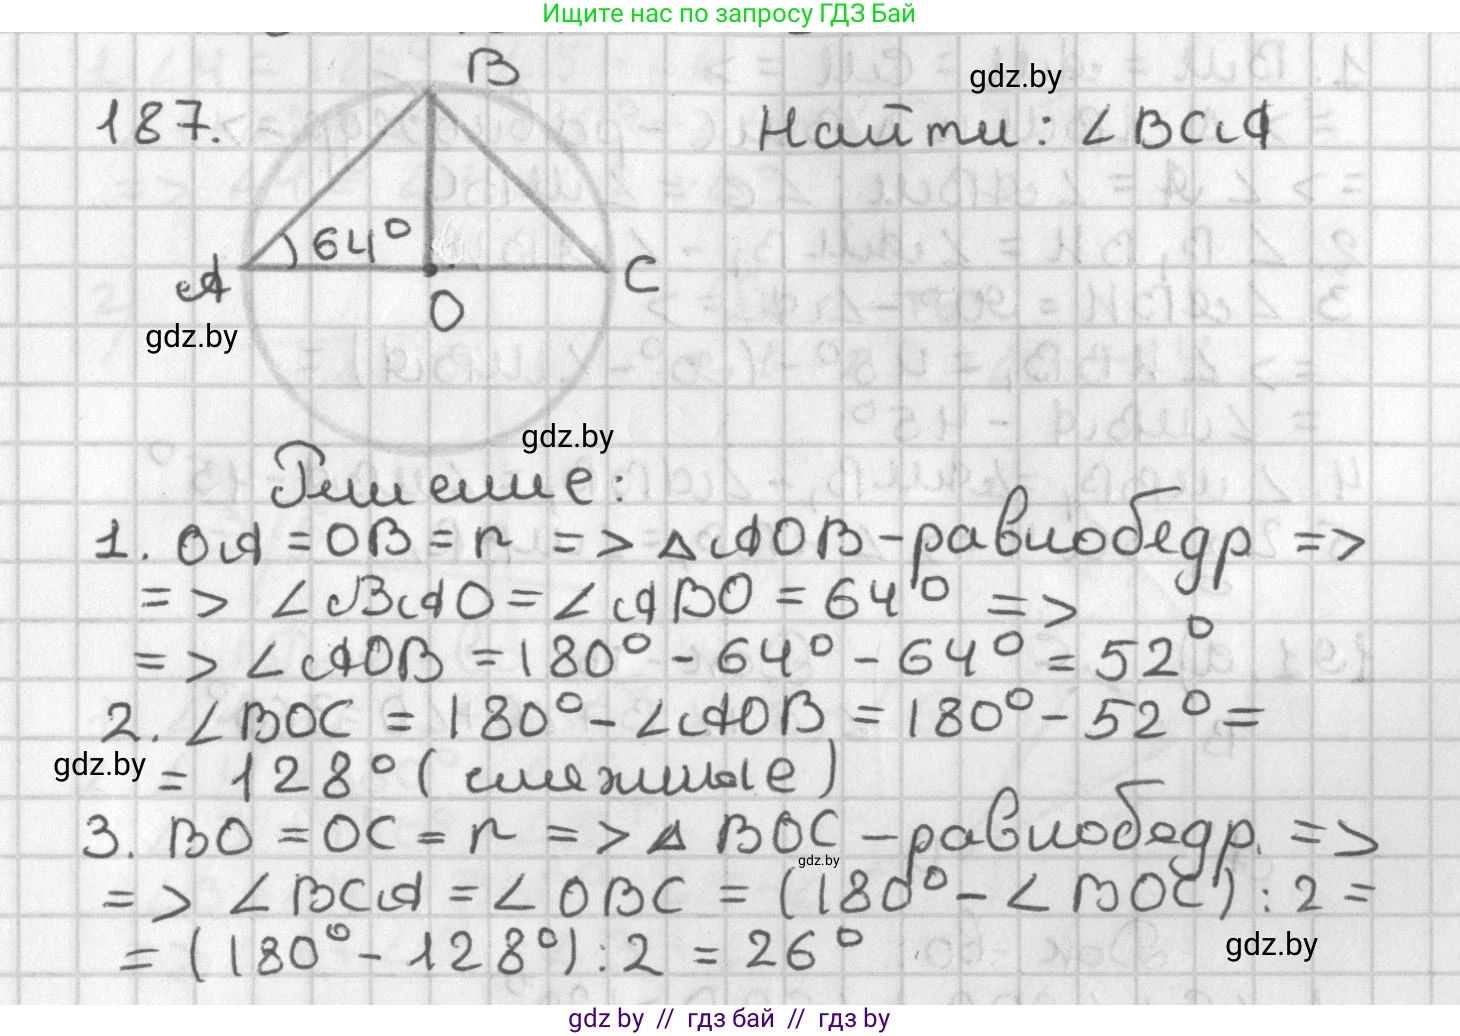 Ищите нас по запросу ГДЗ Бай
B
gdz.by
187.
Найти: ∠BCA
64°
A
C
O
gdz.by
gdz.by
Решение:
1. OA = OB = r => △AOB - равнобедр =>
=> ∠BAO = ∠ABO = 64° =>
=> ∠AOB = 180° - 64° - 64° = 52°
2. ∠BOC = 180° - ∠AOB = 180° - 52° =
gdz.by
= 128° (смежные)
3. BO = OC = r => △ BOC - равнобедр. =>
gdz.by
=> ∠BCA = ∠OBC = (180° - ∠BOC) : 2 =
= (180° - 128°) : 2 = 26°
gdz.by
gdz by // гдз бай // гдз by